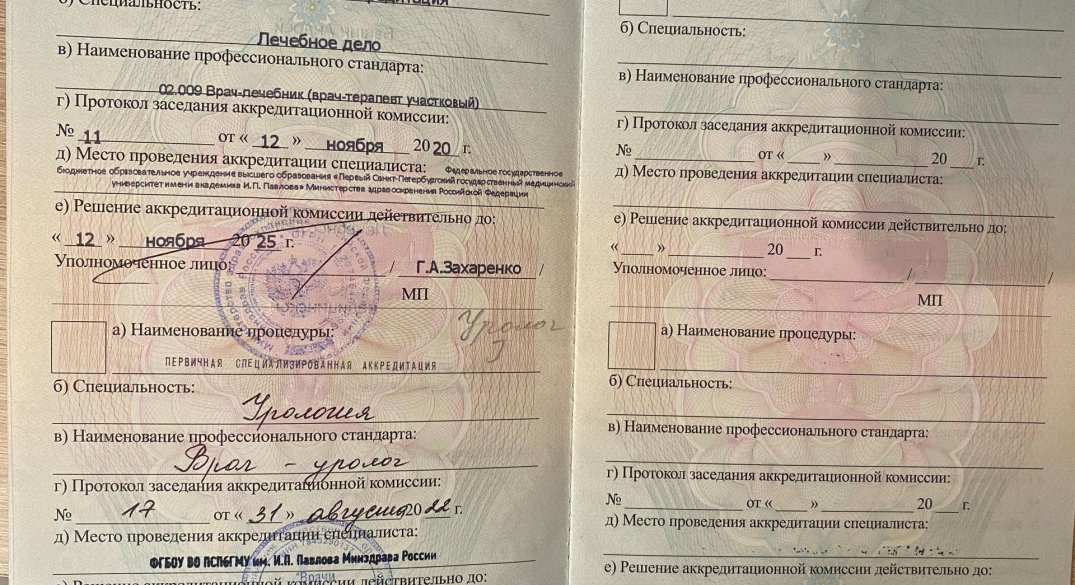 б) Специальность:
Лечебное дело
в) Наименование профессионального стандарта:
02.009 Врач-лечебник (врач-терапевт участковый)
г) Протокол заседания аккредитационной комиссии:
№ 11 от « 12 » ноября 2020 г.
д) Место проведения аккредитации специалиста: Федеральное государственное
бюджетное образовательное учреждение высшего образования «Первый Санкт-Петербургский государственный медицинский
университет имени академика И.П. Павлова» Министерства здравоохранения Российской Федерации
е) Решение аккредитационной комиссии действительно до:
« 12 » ноября 2025 г.
Уполномоченное лицо: / Г.А.Захаренко /
МП
Уролог
а) Наименование процедуры:
ПЕРВИЧНАЯ СПЕЦИАЛИЗИРОВАННАЯ АККРЕДИТАЦИЯ
б) Специальность:
Урология
в) Наименование профессионального стандарта:
Врач - уролог
г) Протокол заседания аккредитационной комиссии:
№ 17 от « 31 » августа 2022 г.
д) Место проведения аккредитации специалиста:
ФГБОУ ВО ПСПбГМУ им. И.П. Павлова Минздрава России
"Врачи
е) Решение аккредитационной комиссии действительно до:
б) Специальность:
в) Наименование профессионального стандарта:
г) Протокол заседания аккредитационной комиссии:
№ от « » 20 г.
д) Место проведения аккредитации специалиста:
е) Решение аккредитационной комиссии действительно до:
« » 20 г.
Уполномоченное лицо: / /
МП
а) Наименование процедуры:
б) Специальность:
в) Наименование профессионального стандарта:
г) Протокол заседания аккредитационной комиссии:
№ от « » 20 г.
д) Место проведения аккредитации специалиста:
е) Решение аккредитационной комиссии действительно до: